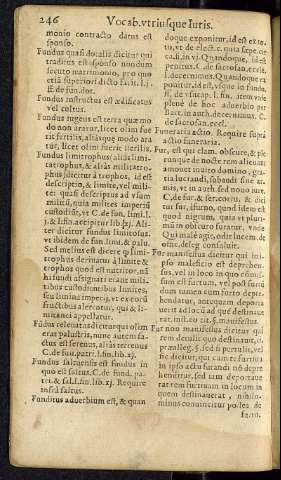 246 Vocab. vtriusque Iuris.
monio contracto datus est
sponso.
Fundus quasi dotalis dicitur qui
traditus est sponso nondum
secuto matrimonio, pro quo
etiā superiori dicto facit. l. j.
ff. de fun. dot.
Fundus instructus est ædificatus
vel cultus.
Fundus iugenis est terra quæ mo
do non aratur, licet olim fue
rit fertilis, aliàsque modo ara
tur, licet olim fuerit sterilis.
Fundus limitrophus, aliàs limi
tatrophus, & aliàs militatro-
phus dicitur à trophos, id est
descriptio, & limite, vel mili-
te: quasi descriptus ad vsum
militū, quia milites imperiū
custodiūt, vt C. de fun. limi. l.
j. & l. fin. accipitur lib. xj. Ali-
ter dicitur fundus limitosus.
vt ibidem de fun. limi. & palu.
Sed melius est dicere q limi-
trophus deriuatur à limite &
trophos quod est nutritor. nā
hi fundi assignati erant mili-
tibus custodientibus limites,
seu limina imperij, vt ex eorū
fructibus alerentur, qui & li-
minanei appellantur.
Fūdus releuatus dicitur qui olim
erat palustris, nunc autem fa-
ctus est serenus, aliàs terrenus
C. de fun. patri. l. fin. lib. xj.
Fundus saluensis est fundus in
quo est saltus. C. de fund. pa-
tri. & sal. l. fin. lib. xj. Require
infrà saltus.
Funditus aduerbium est, & quan
doque exponitur, id est ex to-
to, vt de elect. c. quia sæpe. de
ca. si. in vj. Quandoque, id est
penitus. C. de sacrosan. eccl.
l. decernimus. Quandoque ex
ponitur, id est, vsque in fundū.
ff. de vsucap. l. fin. item vide
plenè de hoc aduerbio per
Bart. in auth. decernimus. C.
de sacrosan. eccl.
Funeraria actio. Require suprà
actio funeraria.
Fur, est qui clam, obscurè, & ple
runque de nocte rem alienam
amouet inuito domino, gra-
tia lucrandi, subdendi siue ani
mi, vt in auth. sed nouo iure.
C. de fur. & ser. corr. & dici
tur fur, à furuo, quod idem est
quod nigrum, quia vt pluri-
mum de nocte furatur. vnde
Qui malè agit, odit lucem. de
offic. deleg. consuluit.
Fur manifestus dicitur qui in i-
pso maleficio est deprehen-
sus, vel in loco in quo cōmis-
sum est furtum, vel post furtū
dum tamen cum furto depre-
hendatur, antequam deporta
uerit ad locū ad quē destinaue
rat. insti. eo. tit. §. manifestus.
Fur non manifestus dicitur qui
rem deculit: quo destinauit, vt
præallega. §. sed si pertulit, vel
sic dicitur, qui cum re furtiua
in ipso actu furandi nō depre
henditur, sed iam deportaue
rat rem furtiuam in locum in
quem destinauerat, nihilo-
minus conuincitur postea de
furto.